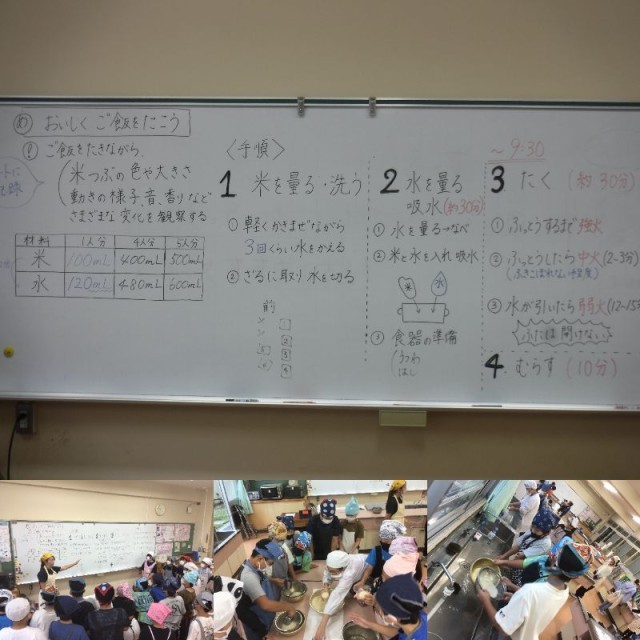 め おいしくご飯をたこう
ご飯をたきながら
米つぶの色や大きさ
動きの様子、音、香りなど
さまざまな変化を観察する
材料 1人分 4人分 5人分
米 100mL 400mL 500mL
水 120mL 480mL 600mL
〈手順〉
1 米を量る・洗う
① 軽くかきまぜながら
3回くらい水をかえる
② ざるに取り水を切る
前
1
2
3
4
2 水を量る
吸水(約30分)
① 水を量る→なべ
② 米と水を入れ吸水
米 水
食器の準備
はし
〜9:30
3 たく (約30分)
① ふっとうするまで強火
② ふっとうしたら中火(2-3分)
(ふきこぼれない程度)
③ 水が引いたら弱火(12-15
ふたは開けない
4 むらす (10分)